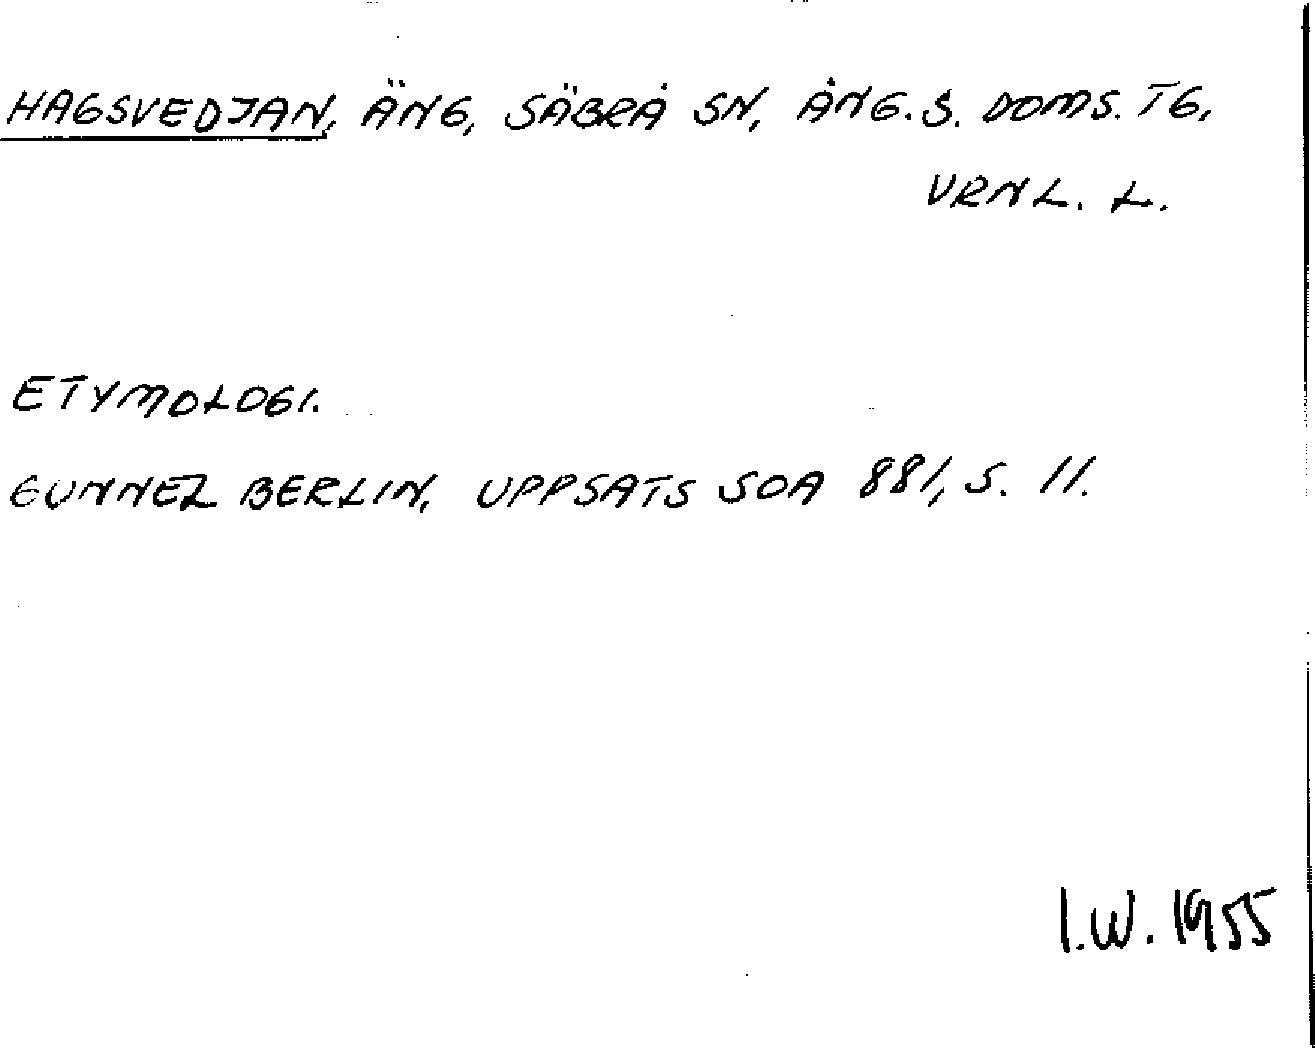 HAGSVEDJAN, ÄNG, SÄBRÅ SN, ÅNG. S. DOMS. TG,
VRNL. L.
ETYMOLOGI.
GUNNEL BERLIN, UPPSATS SOA 881, S. 11.
I.W. 1955